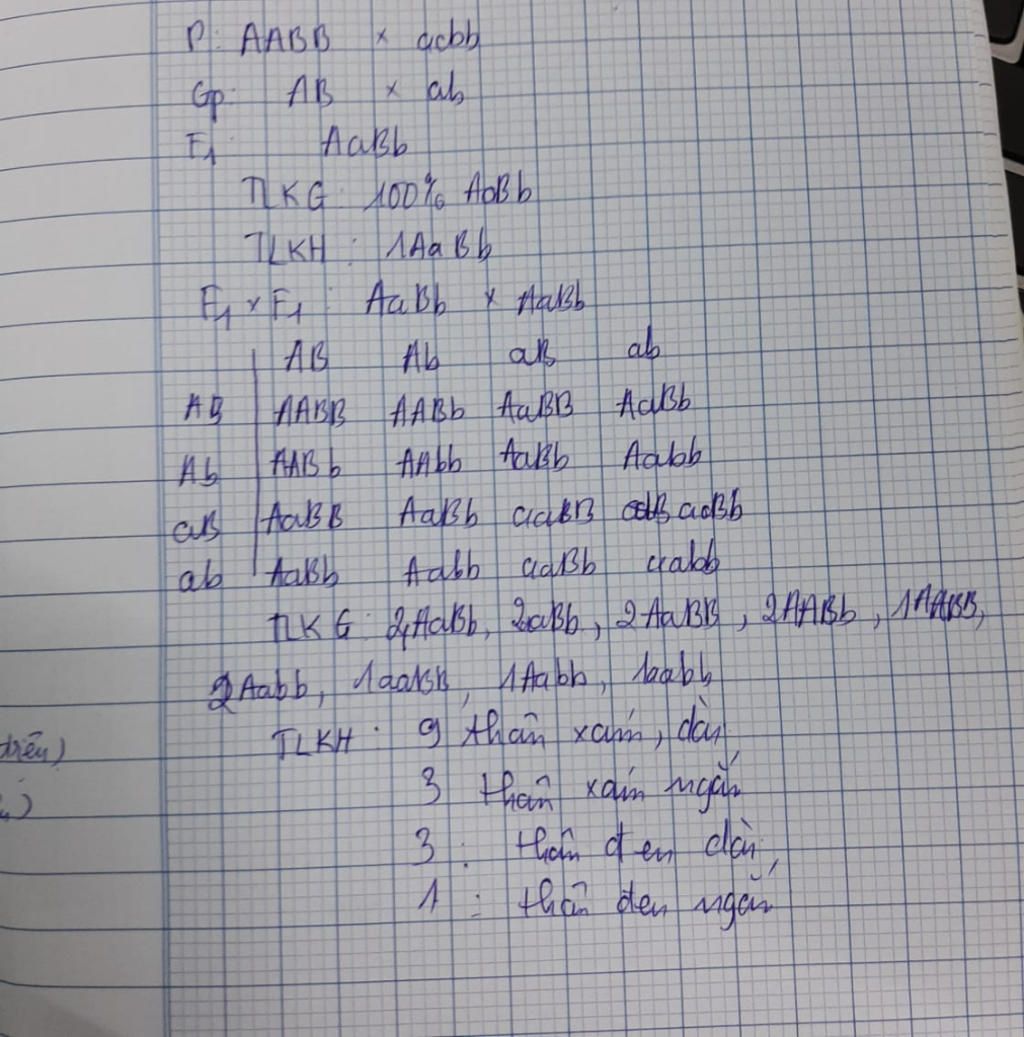 P: AABB x aabb
Gp: AB x ab
F1: AaBb
TLKG: 100% AaBb
TLKH: 1AaBb
F1 x F1: AaBb x AaBb
AB Ab aB ab
AB AABB AABb AaBB AaBb
Ab AABb AAbb AaBb Aabb
aB AaBB AaBb aaBB aaBb
ab AaBb Aabb aaBb aabb
TLKG: 4AaBb, 2aBb, 2AaBB, 2AABb, 1AABB,
2Aabb, 1aaBB, 1Aabb, 1aabb
TLKH: 9 thân xám, dài
3 thân xám ngắn
3: thân đen dài,
1: thân đen ngắn
trên)